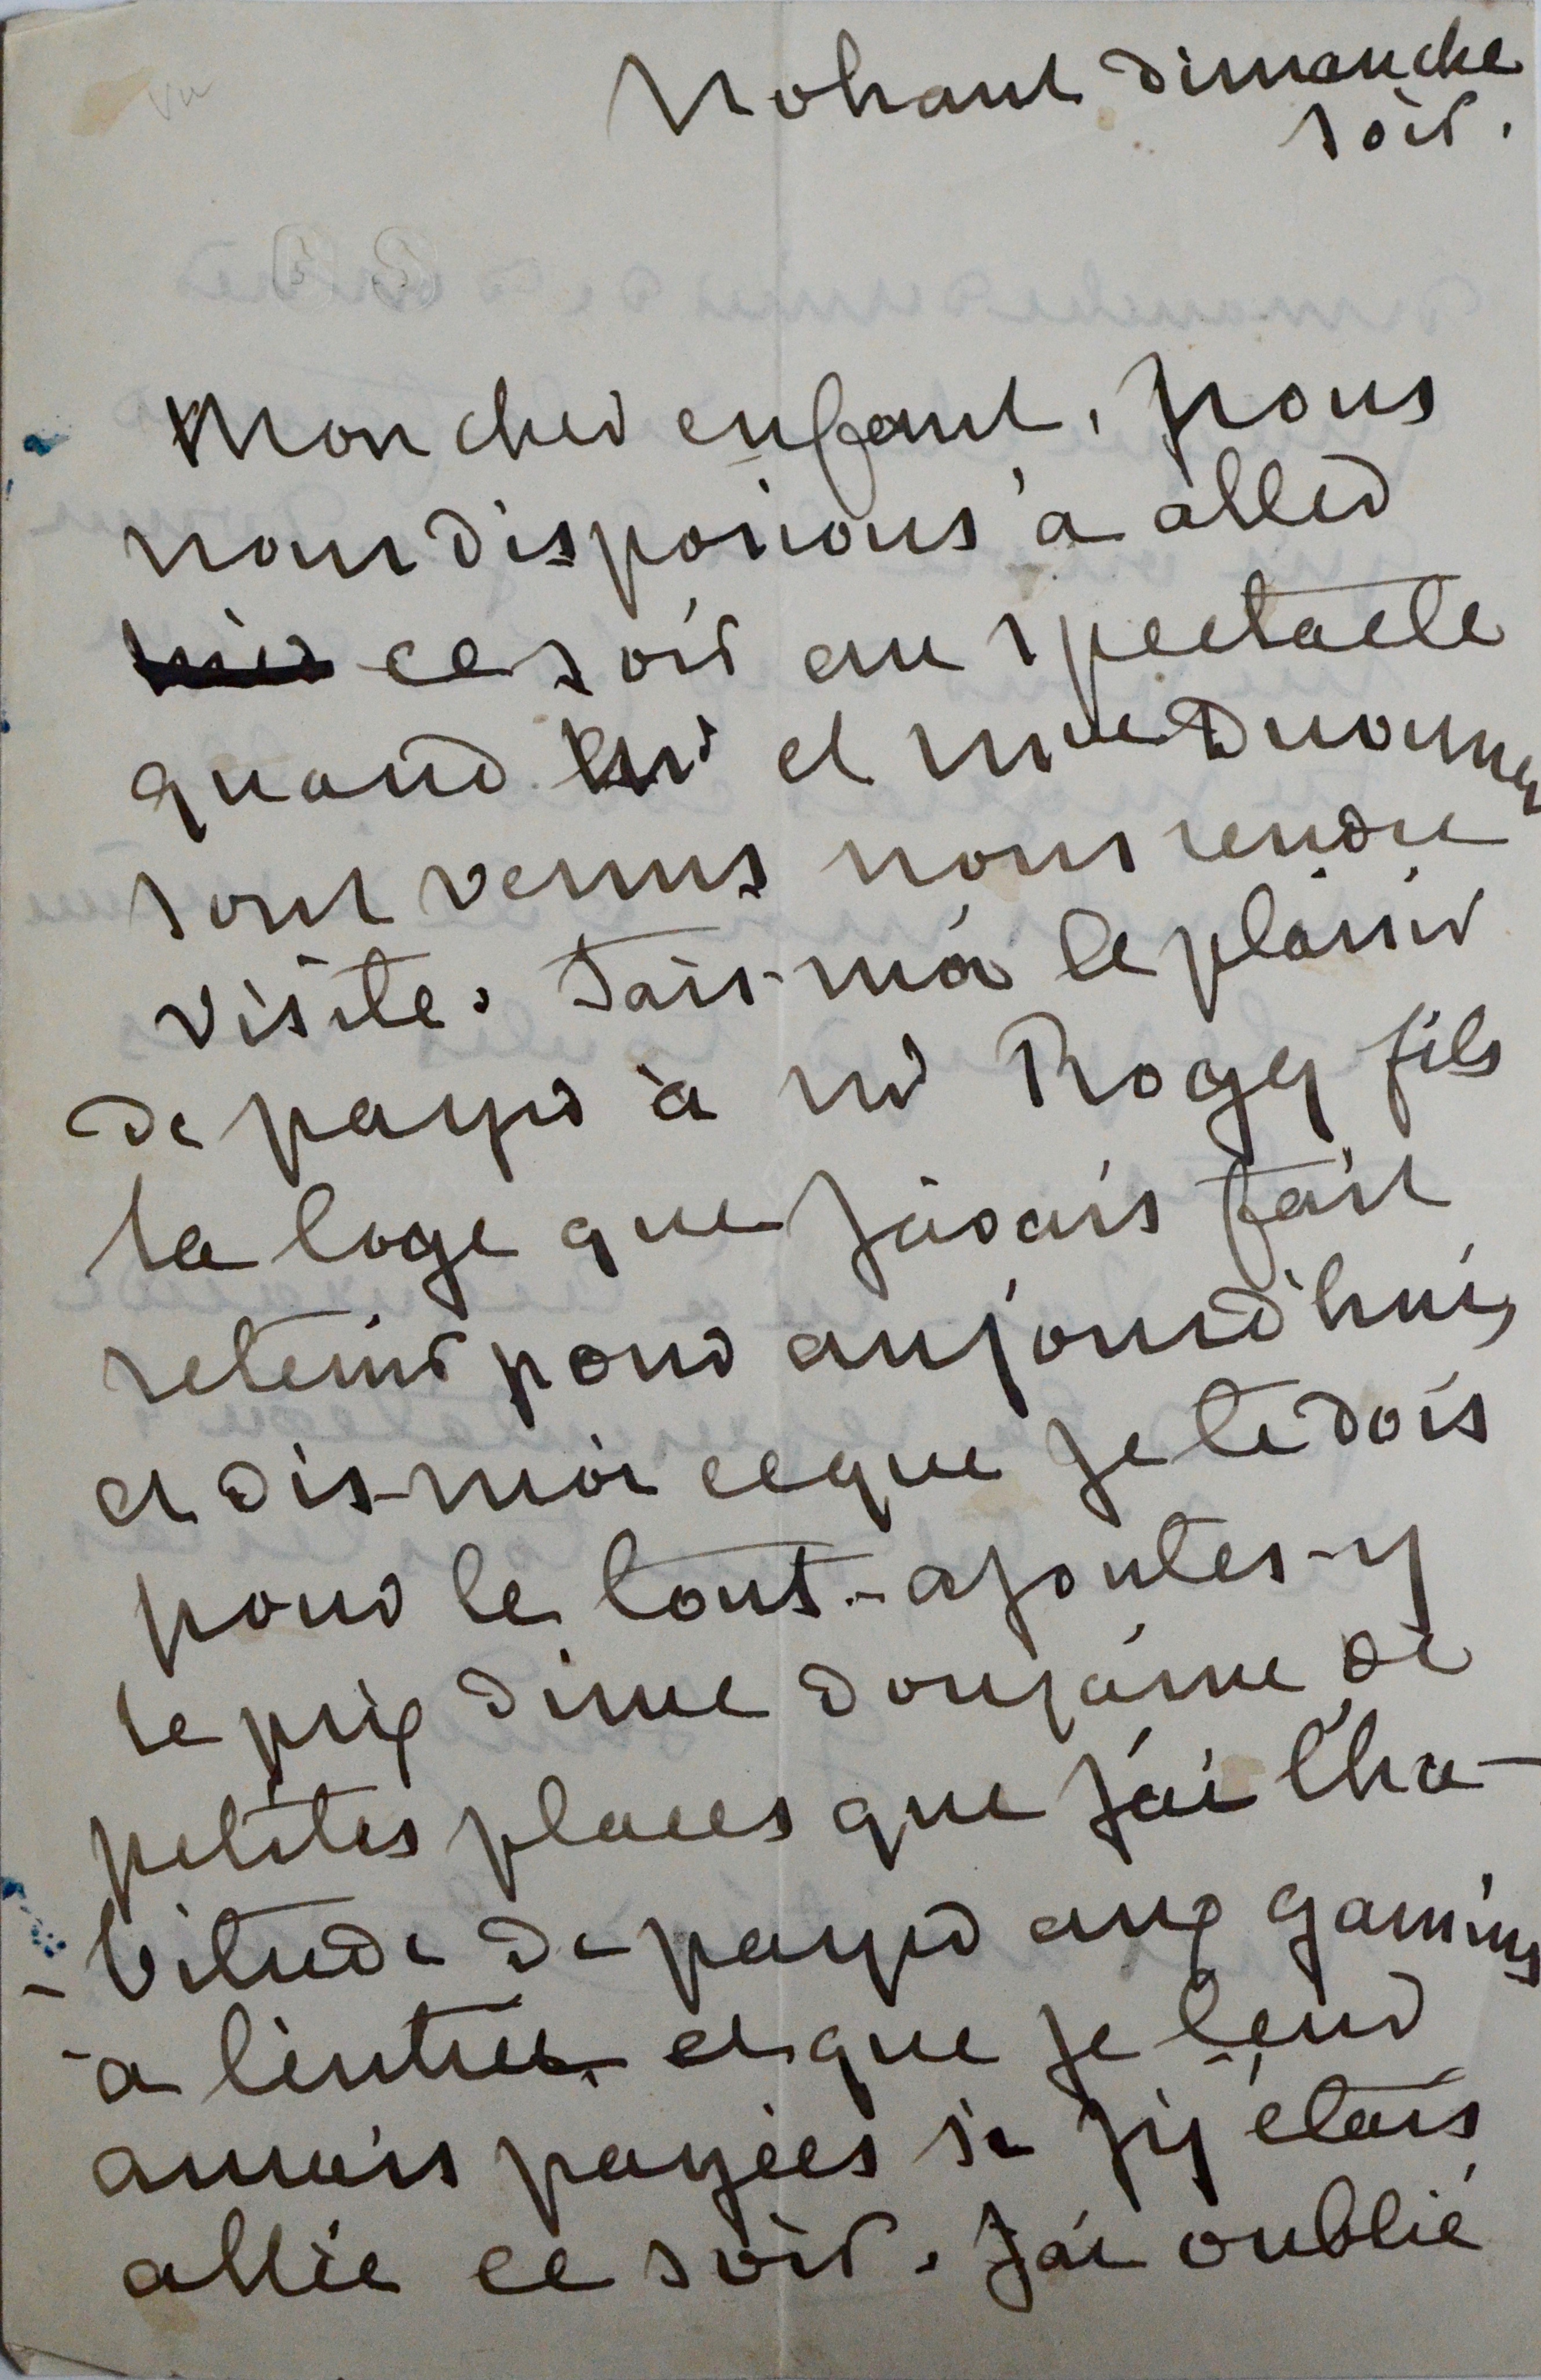 Nohant dimanche
soir.
Mon cher enfant, nous
nous disposions à aller
ce soir au spectacle
quand Mr et Mme Duvernet
sont venus nous rendre
visite. Fais-moi le plaisir
de payer à Mr Rogy fils
la loge que j'avais fait
retenir pour aujourd'hui,
et dis-moi ce que je te dois
pour le tout - ajoutes-y
le prix d'une douzaine de
petites places que j'ai l'ha-
-bitude de payer aux gamins
à l'entrée et que je leur
aurais payées si j'y étais
allée ce soir. J'ai oublié